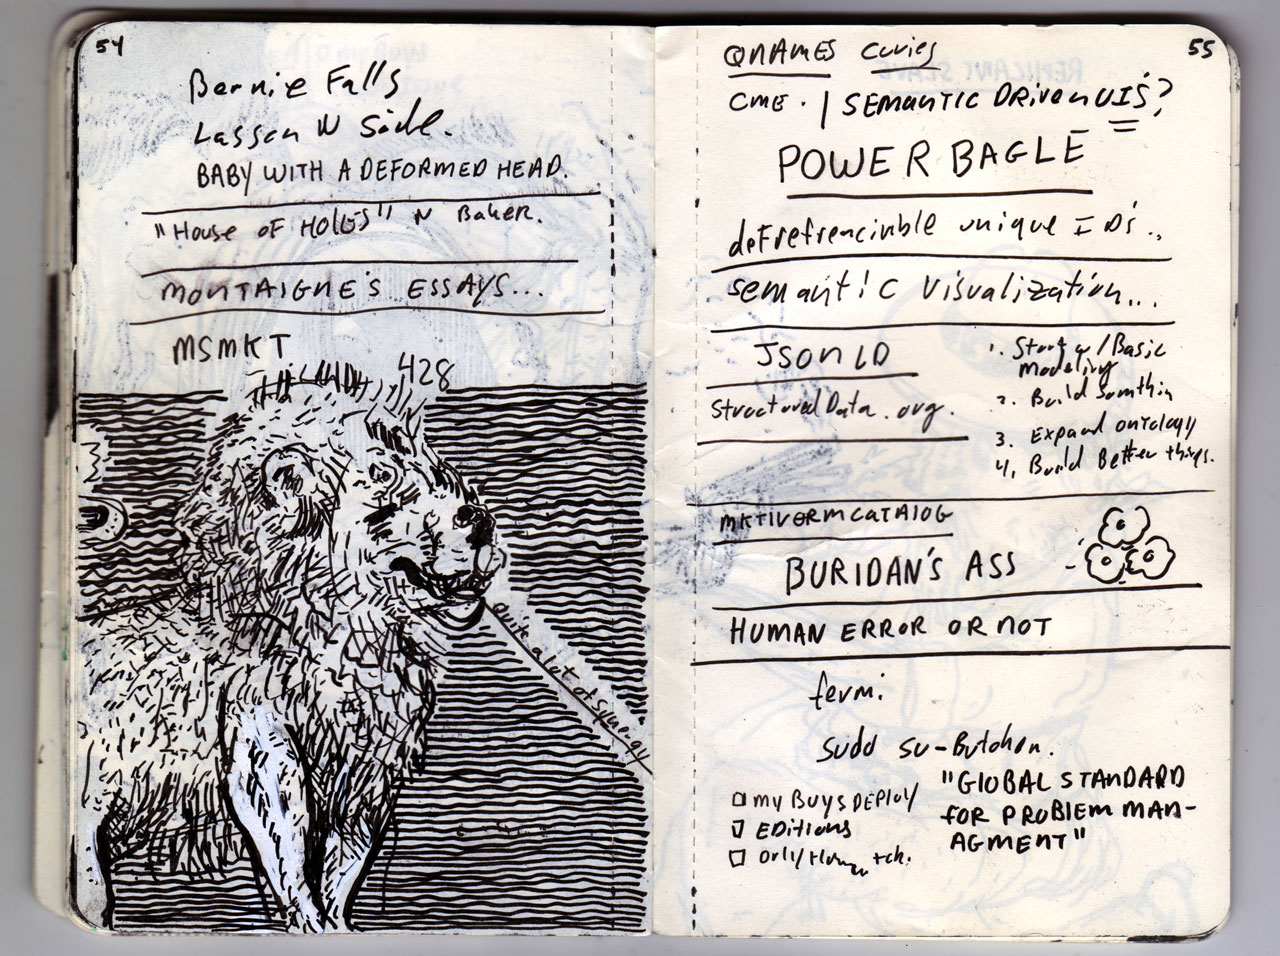 54
Bernie Falls
Lassen N Side.
BABY WITH A DEFORMED HEAD.
"House OF HOLES" N Baker.
MONTAIGNE'S ESSAYS...
MSMKT
428
quite a lot of synergy
55
QNAMES Curies
CME. | SEMANTIC DRIVEN UIS?
POWER BAGLE
defrefrencinble unique IDs..
semantic visualization...
JSON LD
StructuredData.org.
1. Start w/Basic
modeling
2. Build somthin
3. Expand ontology
4. Build Better things.
MKTIVERMCATALOG
BURIDAN'S ASS
HUMAN ERROR OR NOT
fermi
sudo su-Butchon.
"GLOBAL STANDARD
FOR PROBLEM MAN-
AGMENT"
my Buys DEPLOY
EDITIONS